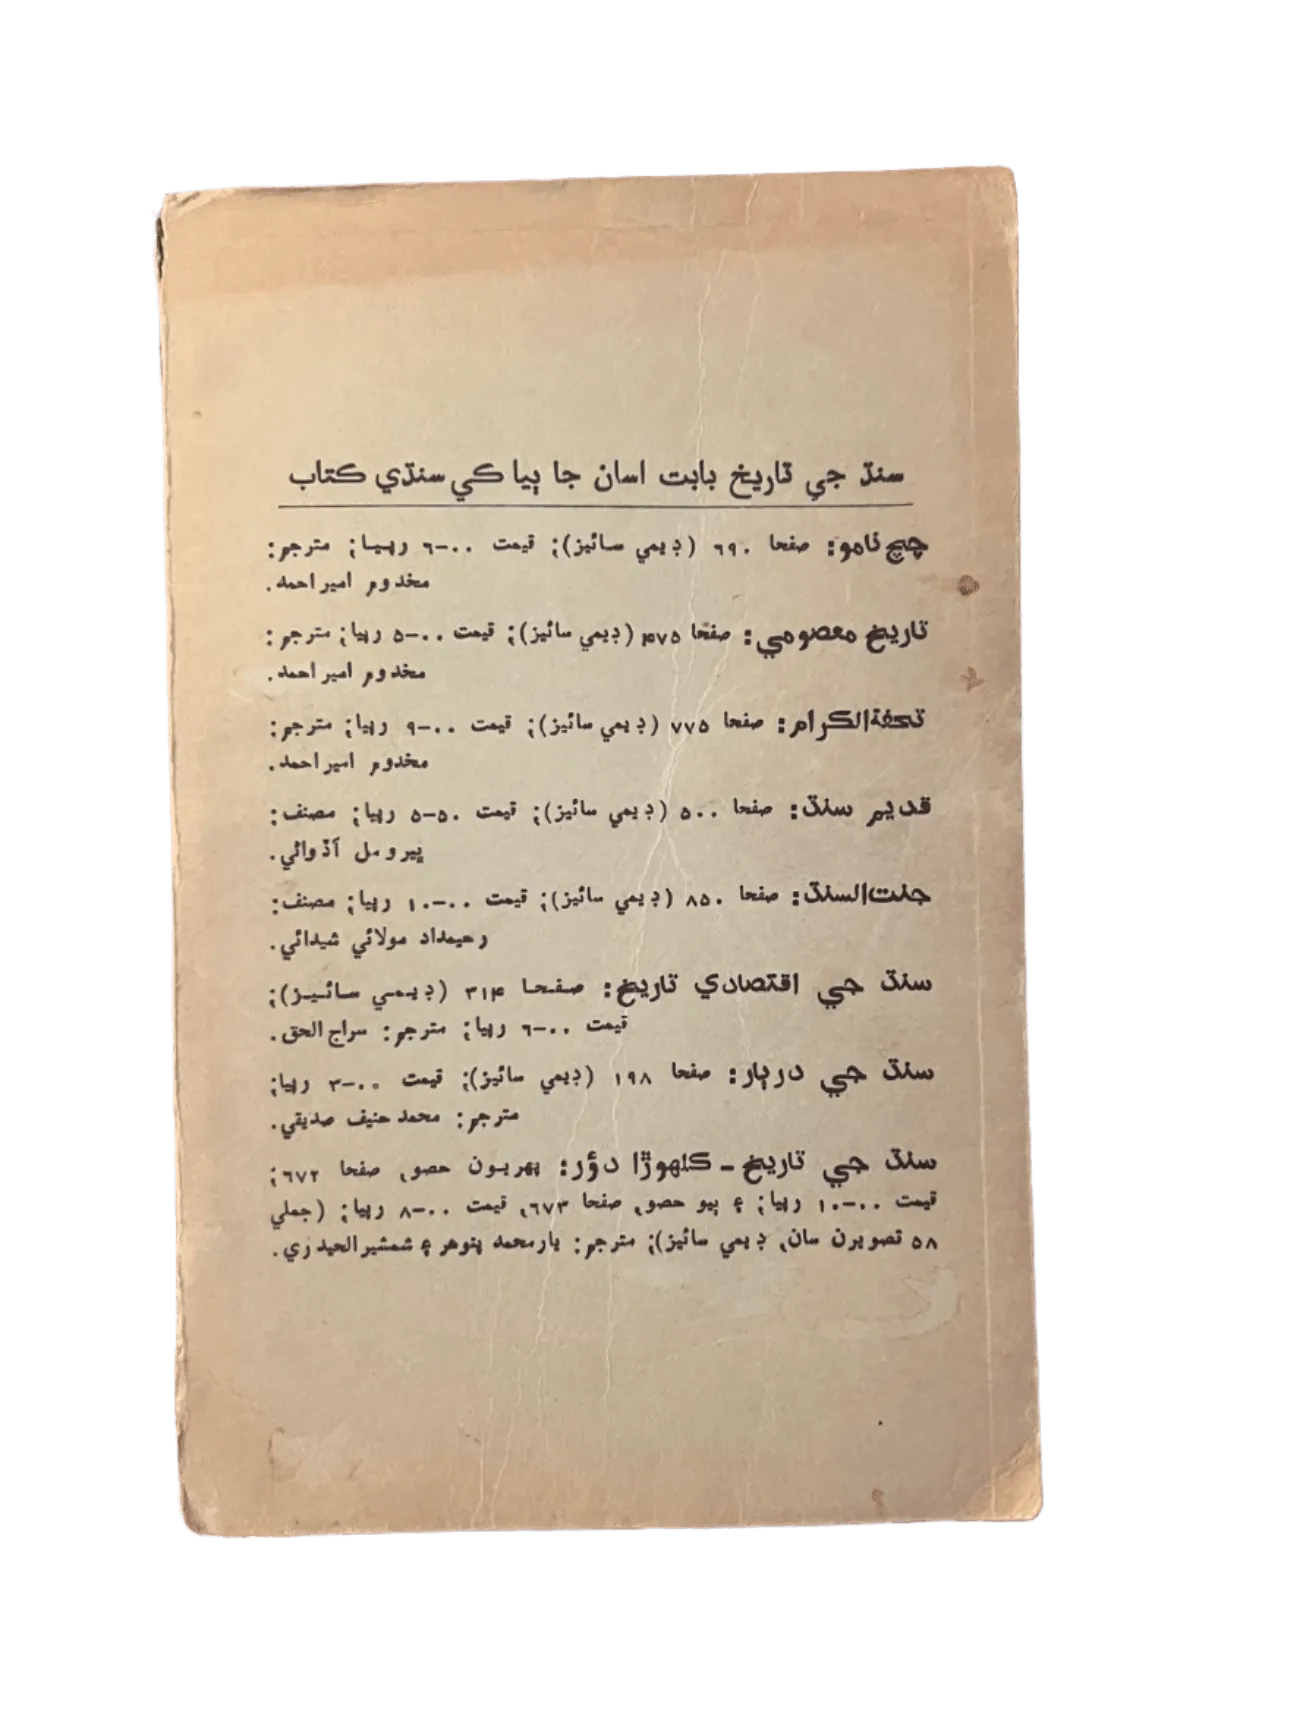 سنڌ جي تاريخ بابت اسان جا ٻيا ڪي سنڌي ڪتاب
چچ نامو: صفحا ۶۹۰ (ڊيمي سائيز)؛ قيمت ۰۰-۶ رپيا؛ مترجم:
مخدوم امير احمد.
تاريخ معصومي: صفحا ۴۷۵ (ڊيمي سائيز)؛ قيمت ۰۰-۵ رپيا؛ مترجم:
مخدوم امير احمد.
تحفةالڪرام: صفحا ۷۷۵ (ڊيمي سائيز)؛ قيمت ۰۰-۹ رپيا؛ مترجم:
مخدوم امير احمد.
قديم سنڌ: صفحا ۵۰۰ (ڊيمي سائيز)؛ قيمت ۵۰-۵ رپيا؛ مصنف:
ڀيرومل آڏواڻي.
جنت السنڌ: صفحا ۸۵۰ (ڊيمي سائيز)؛ قيمت ۰۰-۱۰ رپيا؛ مصنف:
رحيمداد مولائي شيدائي.
سنڌ جي اقتصادي تاريخ: صفحا ۳۱۴ (ڊيمي سائيز)؛
قيمت ۰۰-۶ رپيا؛ مترجم: سراج الحق.
سنڌ جي درٻار: صفحا ۱۹۸ (ڊيمي سائيز)؛ قيمت ۰۰-۳ رپيا؛
مترجم: محمد حنيف صديقي.
سنڌ جي تاريخ - ڪلهوڙا دؤر: پهريون حصو، صفحا ۶۷۲؛
قيمت ۰۰-۱۰ رپيا؛ ۽ ٻيو حصو، صفحا ۶۷۳، قيمت ۰۰-۸ رپيا؛ (جملي
۵۸ تصويرن سان، ڊيمي سائيز)؛ مترجم: يار محمد پنوهر ۽ شمشير الحيدري.